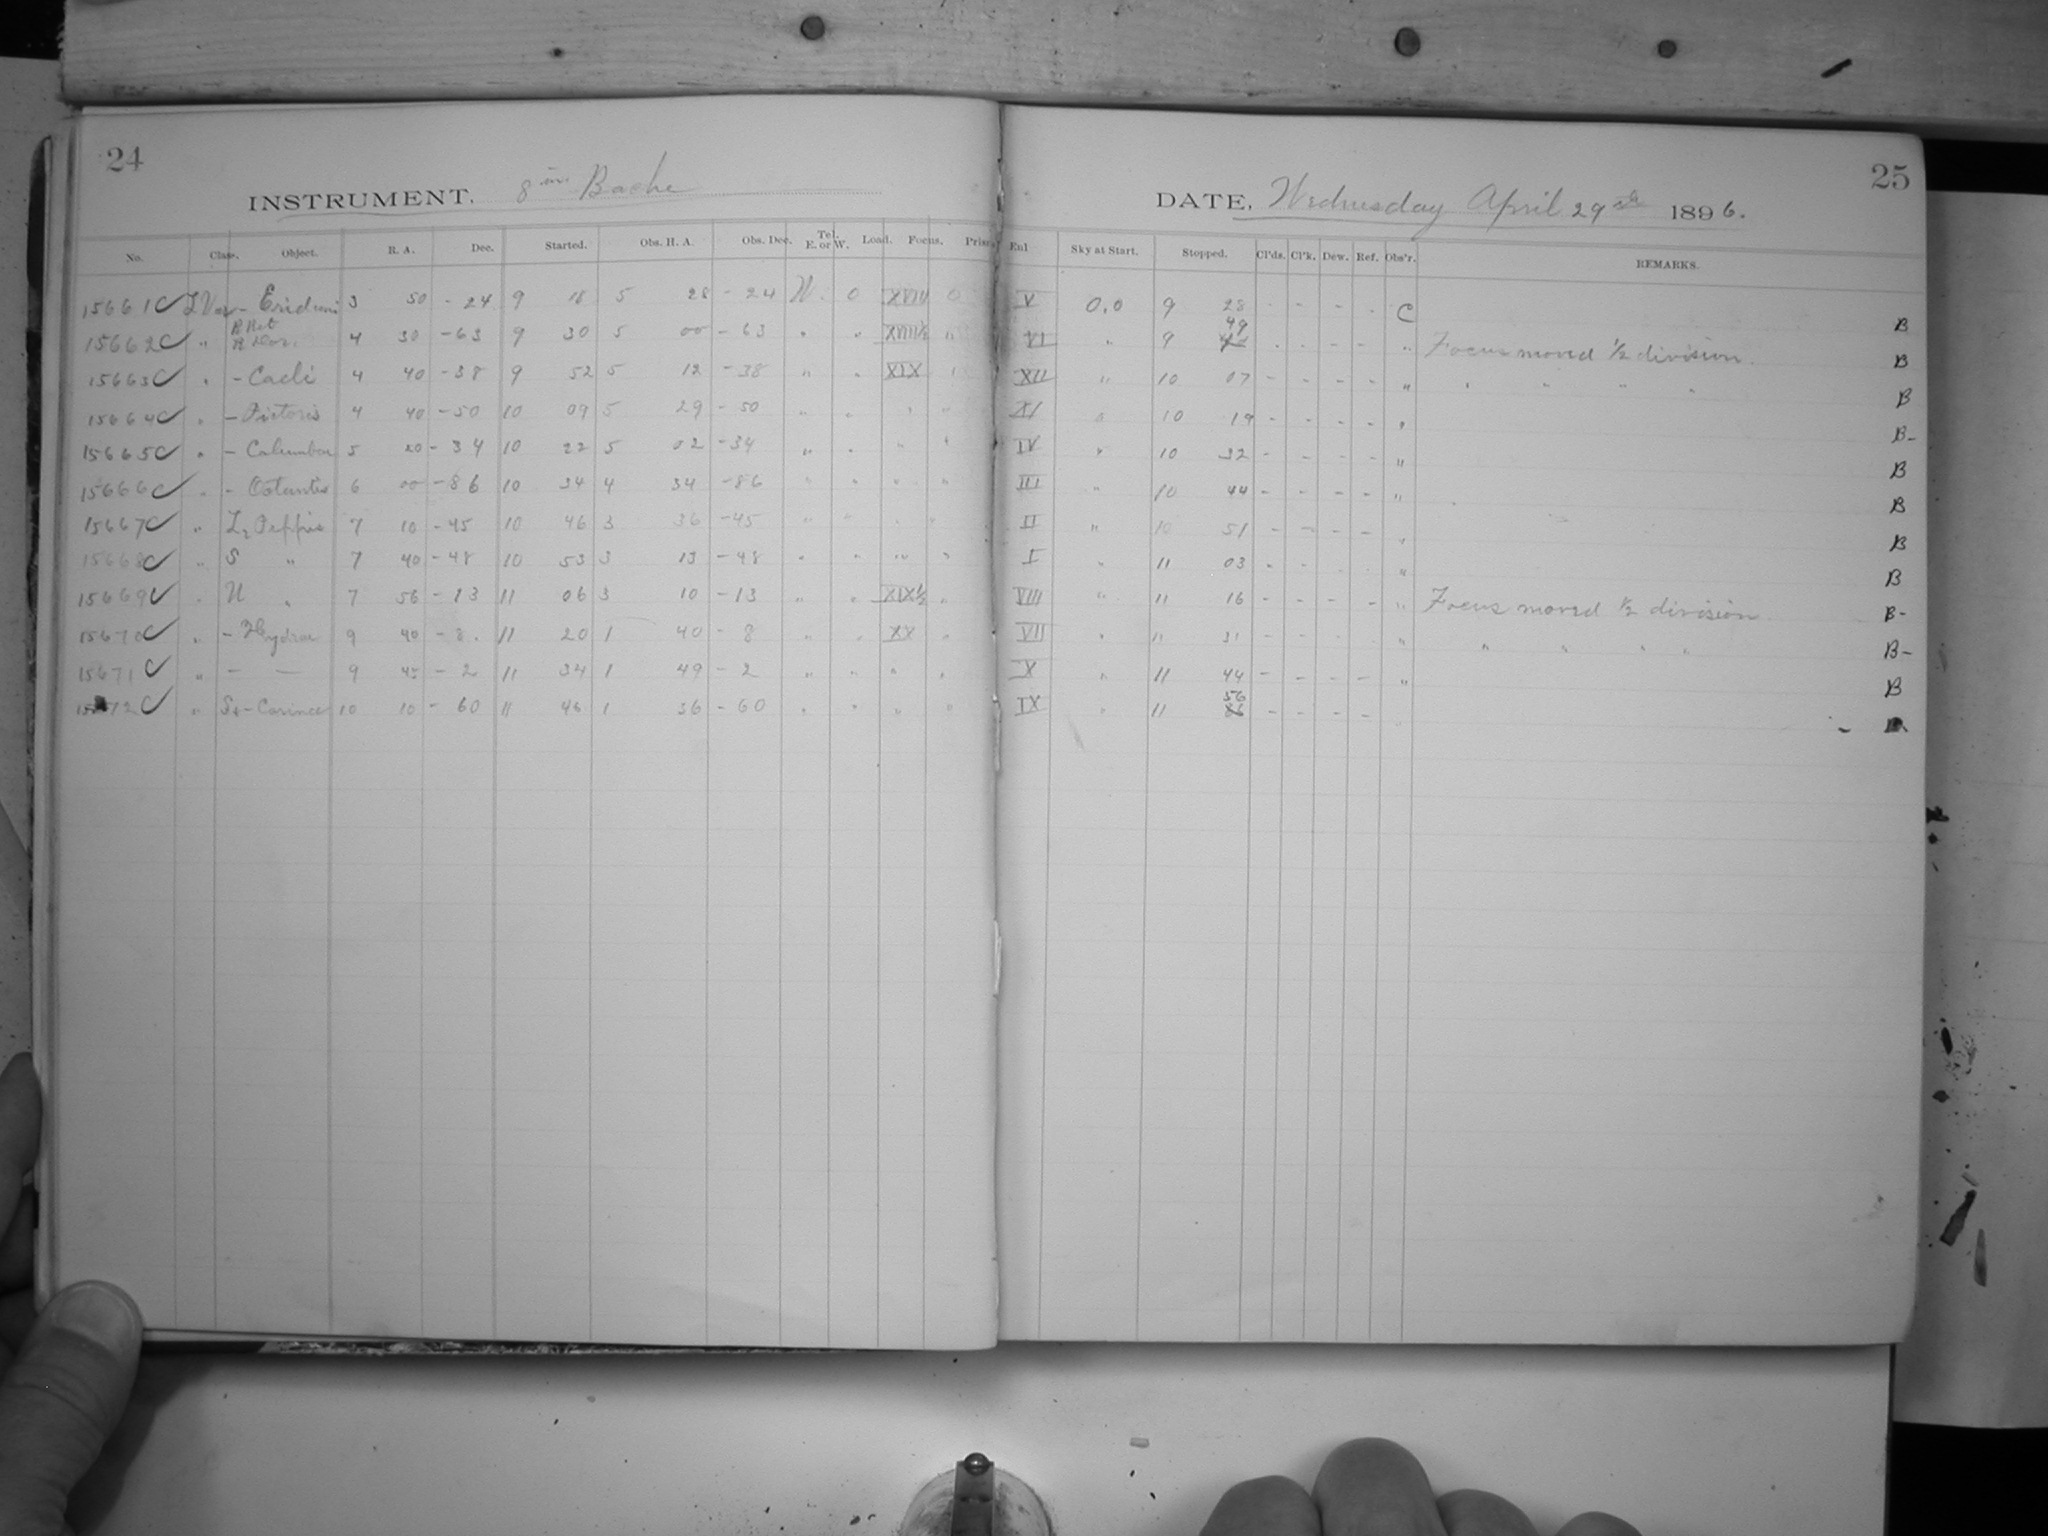 24
INSTRUMENT. 8 in. Bache
No. Class. Object. R. A. Dec. Started. Obs. H. A. Obs. Dec. Tel. E. or W. Load. Focus. Prism
15661C - Eridani 3 50 - 24 9 18 5 28 - 24 W. 0 XVIII 0
15662C " R Ret R Dor. 4 30 - 63 9 30 5 00 - 63 " " XVIII½ "
15663C " - Caeli 4 40 - 38 9 52 5 12 - 38 " " XIX "
15664C " - Pictoris 4 40 - 50 10 09 5 29 - 50 " " " "
15665C " - Columbae 5 20 - 34 10 22 5 02 - 34 " " " "
15666C " - Octantis 6 00 - 86 10 34 4 34 - 86 " " " "
15667C " L2 Puppis 7 10 - 45 10 46 3 36 - 45 " " "
15668C " S " 7 40 - 48 10 53 3 13 - 48 " " " "
15669C " U " 7 56 - 13 11 06 3 10 - 13 " " XIX½ "
15670C " - Hydrae 9 40 - 8. 11 20 1 40 - 8 " " XX "
15671C " - — 9 45 - 2 11 34 1 49 - 2 " " " "
15672C " - Carinae 10 10 - 60 11 46 1 36 - 60 " " " "
25
DATE. Wednesday April 29 1896.
Sky at Start. Stopped. Cl'ds. Cl'k. Dew. Ref. Obs'r. REMARKS.
V 0.0 9 28 - - - - C B
VI " 9 49 - - - - " Focus moved ½ division. B
XII " 10 07 - - - - " " " " " B
XI " 10 19 - - - - " B-
IV " 10 32 - - - - " B
III " 10 44 - - - - " B
II " 10 51 - - - - " B
I " 11 03 - - - - " B
VIII " 11 16 - - - - " Focus moved ½ division. B-
VII " 11 31 - - - - " " " " " B-
X " 11 44 - - - - " B
IX " 11 56 - - - - "